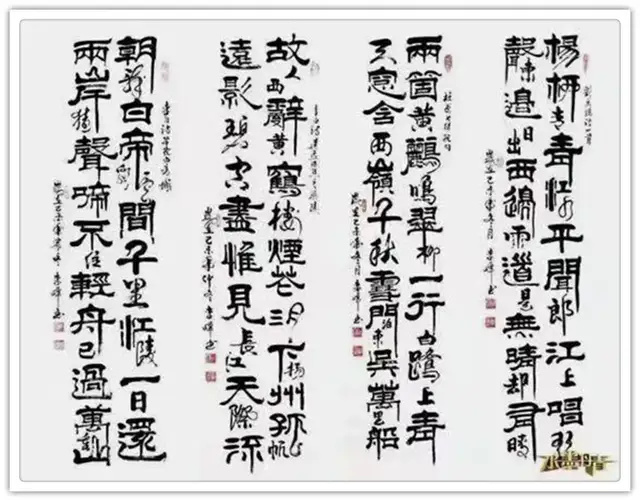 楊柳青青江水平聞郎江上唱歌
聲東邊日出西邊雨道是無晴却有晴
兩箇黃鸝鳴翠柳一行白鷺上青
天窗含西嶺千秋雪門泊東吳萬里船
故人西辭黃鶴樓煙花三月下揚州孤帆
遠影碧空盡惟見長江天際流
朝辭白帝彩雲間千里江陵一日還
兩岸猿聲啼不住輕舟已過萬重山
水墨丹青